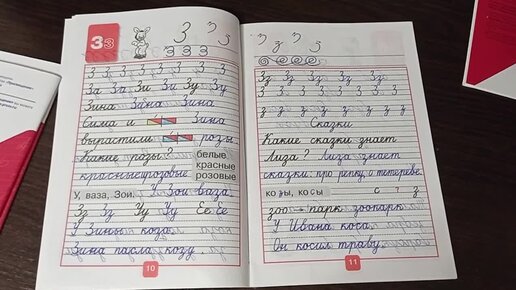 Зз З З з
З З З З З З З З
За За Зи Зи Зу Зу
Зина Зина Зина
Сима и Зина
вырастили розы
Какие розы? белые
красные
красные розовые розовые
У, ваза, Зои. У Зои ваза.
Зз Зз Уу Уу Ее Ее
У Зины коза.
Зина пасла козу.
10
З з З з
Зз Зз Зз Зз
З З З З З З З З З
з з з з з з з з
Сказки
Какие сказки знает
Лиза? Лиза знает
сказки про репку, о тетереве.
козы, косы с ? з
зоо → парк зоопарк
У Ивана коса.
Он косил траву.
11